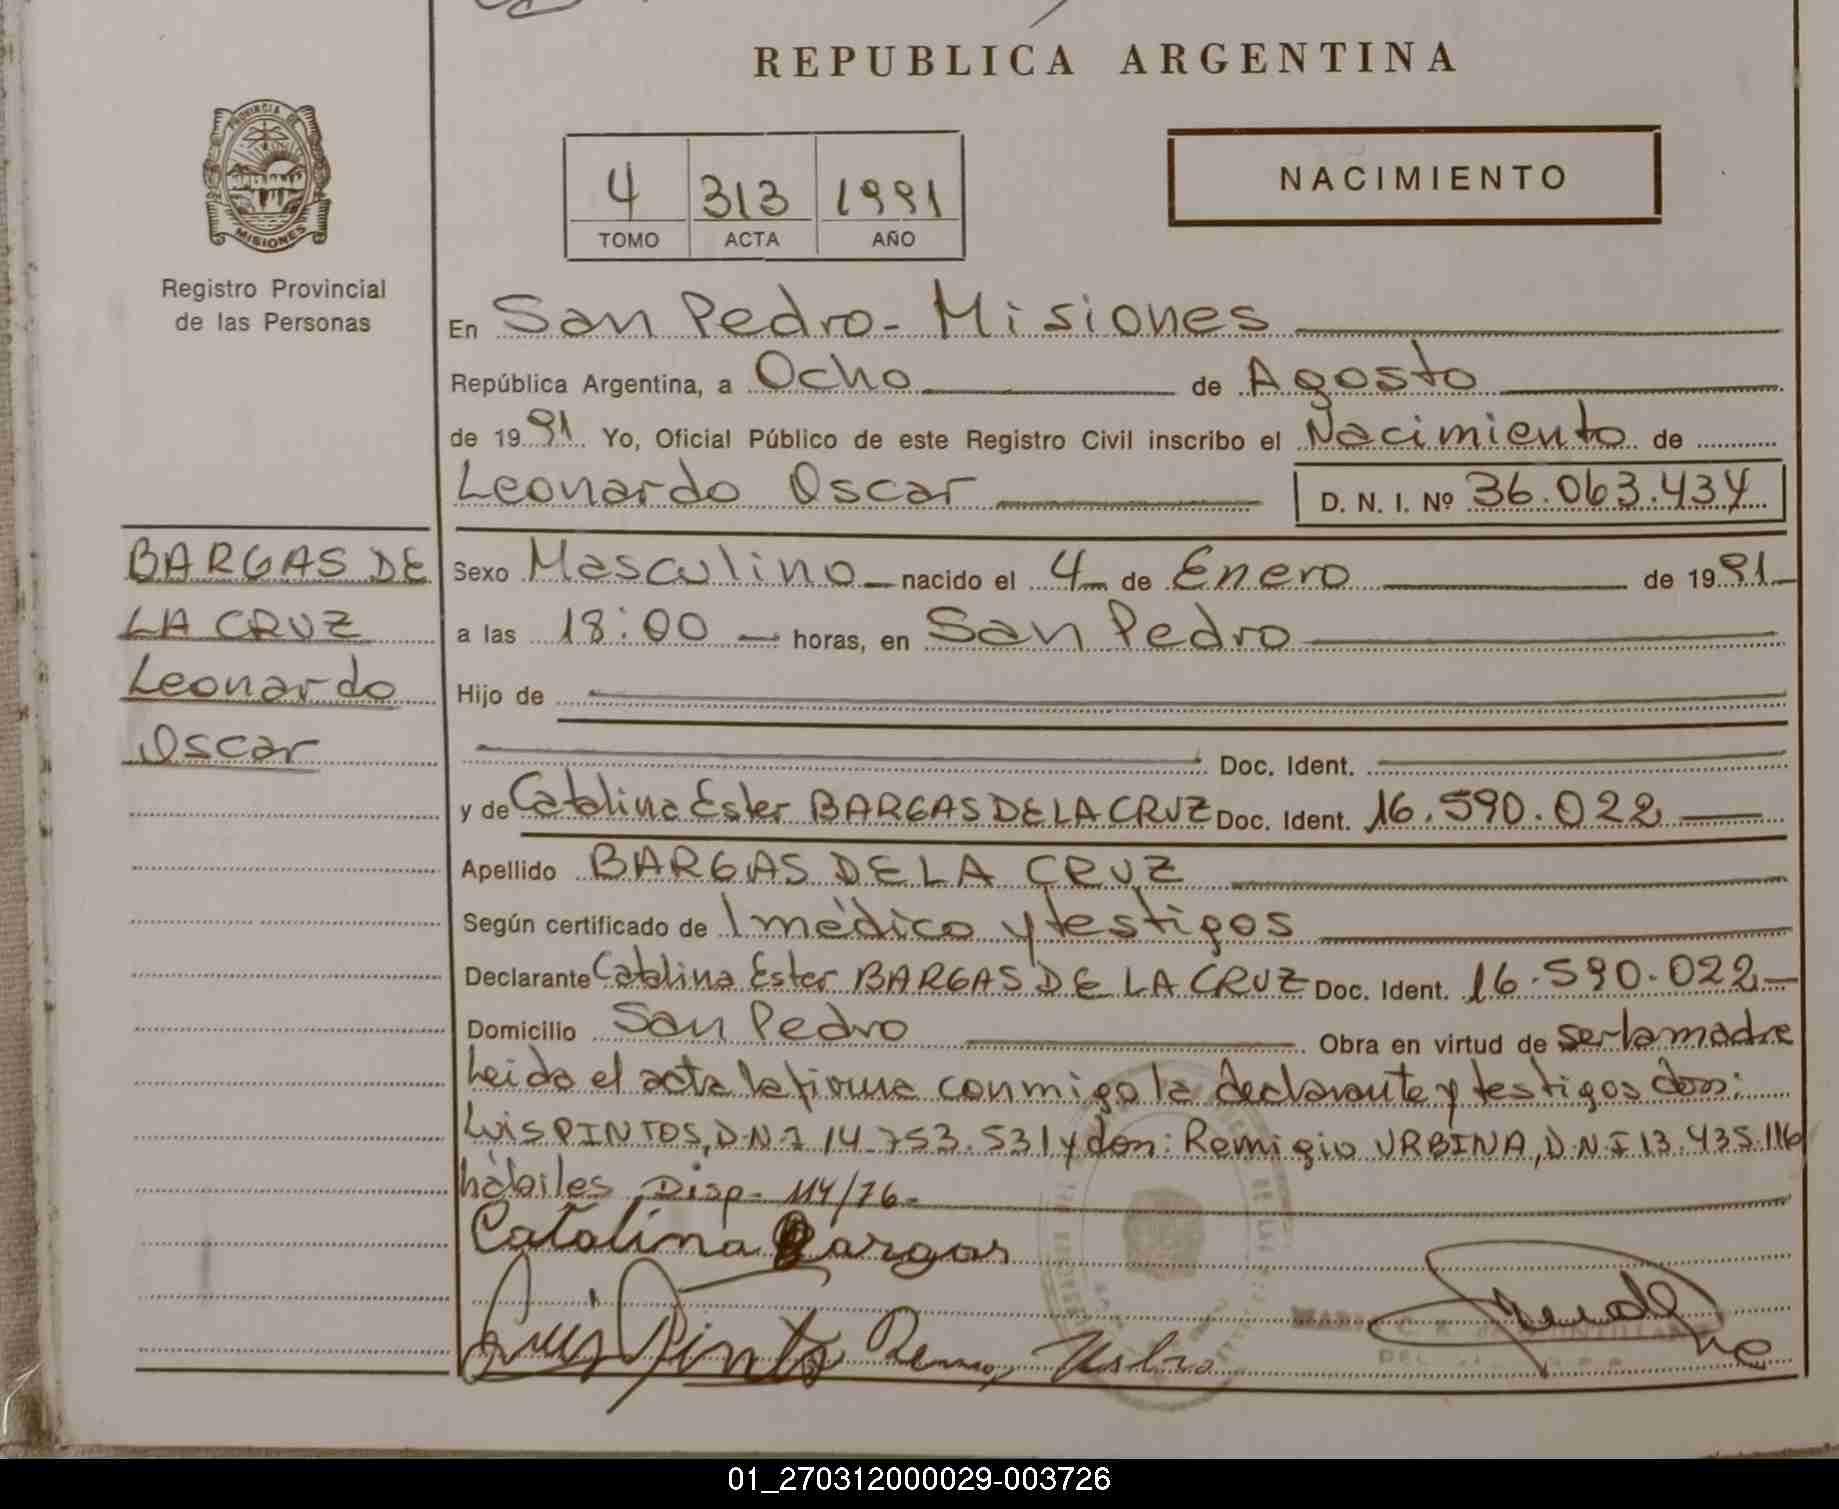 REPUBLICA ARGENTINA
PROVINCIA DE
MISIONES
Registro Provincial
de las Personas
4 313 1991
TOMO ACTA AÑO
NACIMIENTO
En San Pedro - Misiones
República Argentina, a Ocho de Agosto
de 1991 Yo, Oficial Público de este Registro Civil inscribo el Nacimiento de
Leonardo Oscar D. N. I. Nº 36.063.434
BARGAS DE
LA CRUZ
Leonardo
Oscar
Sexo Masculino nacido el 4 de Enero de 1991
a las 18:00 horas, en San Pedro
Hijo de
Doc. Ident.
y de Catalina Ester BARGAS DE LA CRUZ Doc. Ident. 16.590.022
Apellido BARGAS DE LA CRUZ
Según certificado de 1 médico y testigos
Declarante Catalina Ester BARGAS DE LA CRUZ Doc. Ident. 16.590.022
Domicilio San Pedro Obra en virtud de ser la madre
Leida el acta la firma conmigo la declarante y testigos don:
Luis PINTOS, D.N.I 14.753.531 y don: Remigio URBINA, D.N.I 13.435.116
hábiles Disp. 114/76.
Catalina Bargas
Luis Pinto
01_270312000029-003726